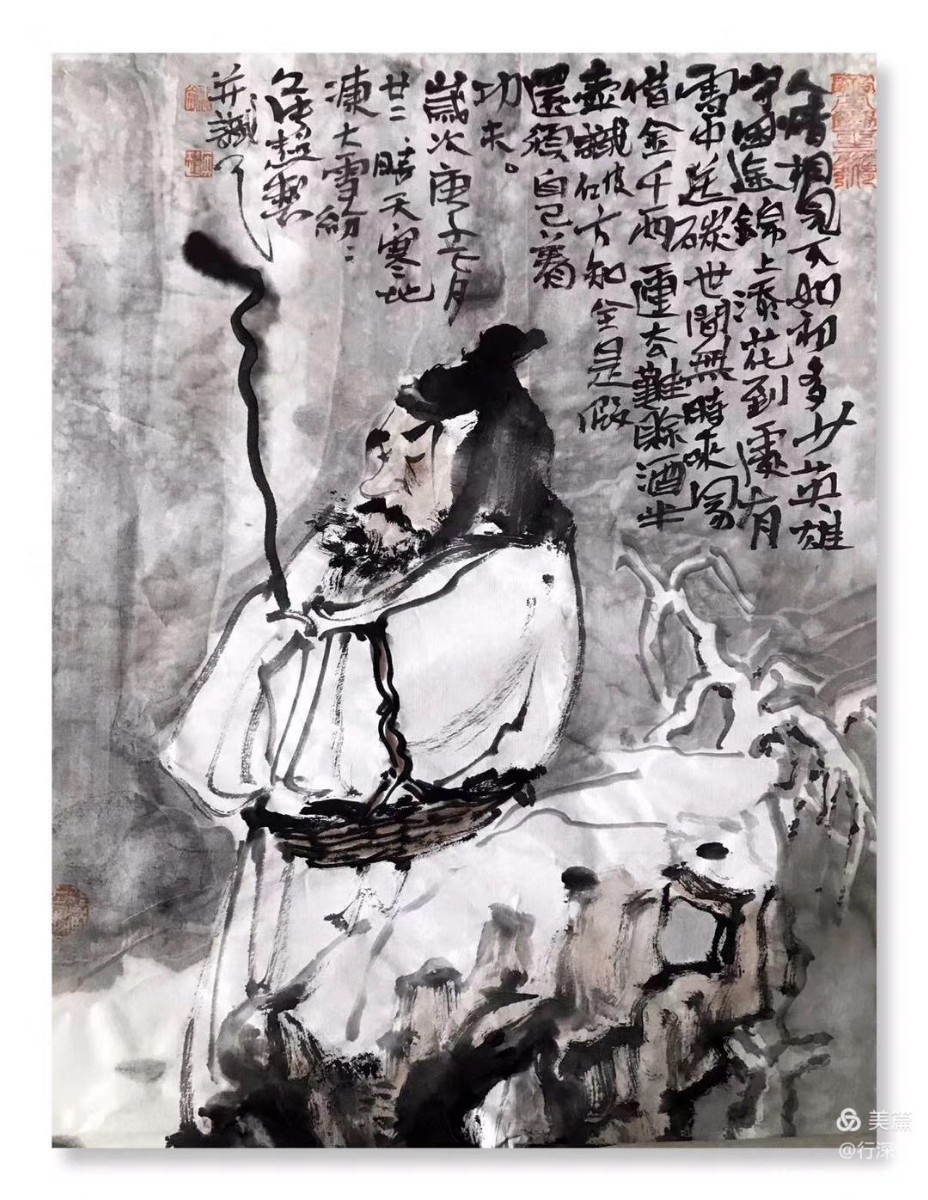 人情相見不如初多少英雄
守困途錦上添花到處有
雪中送碳世間無時來易
借金千兩運去難賒酒半
壺識破方知全是假
還須自己着
功夫。
歲次庚子月
廿二天寒地
凍大雪紛:
超
并識
美篇
@行深